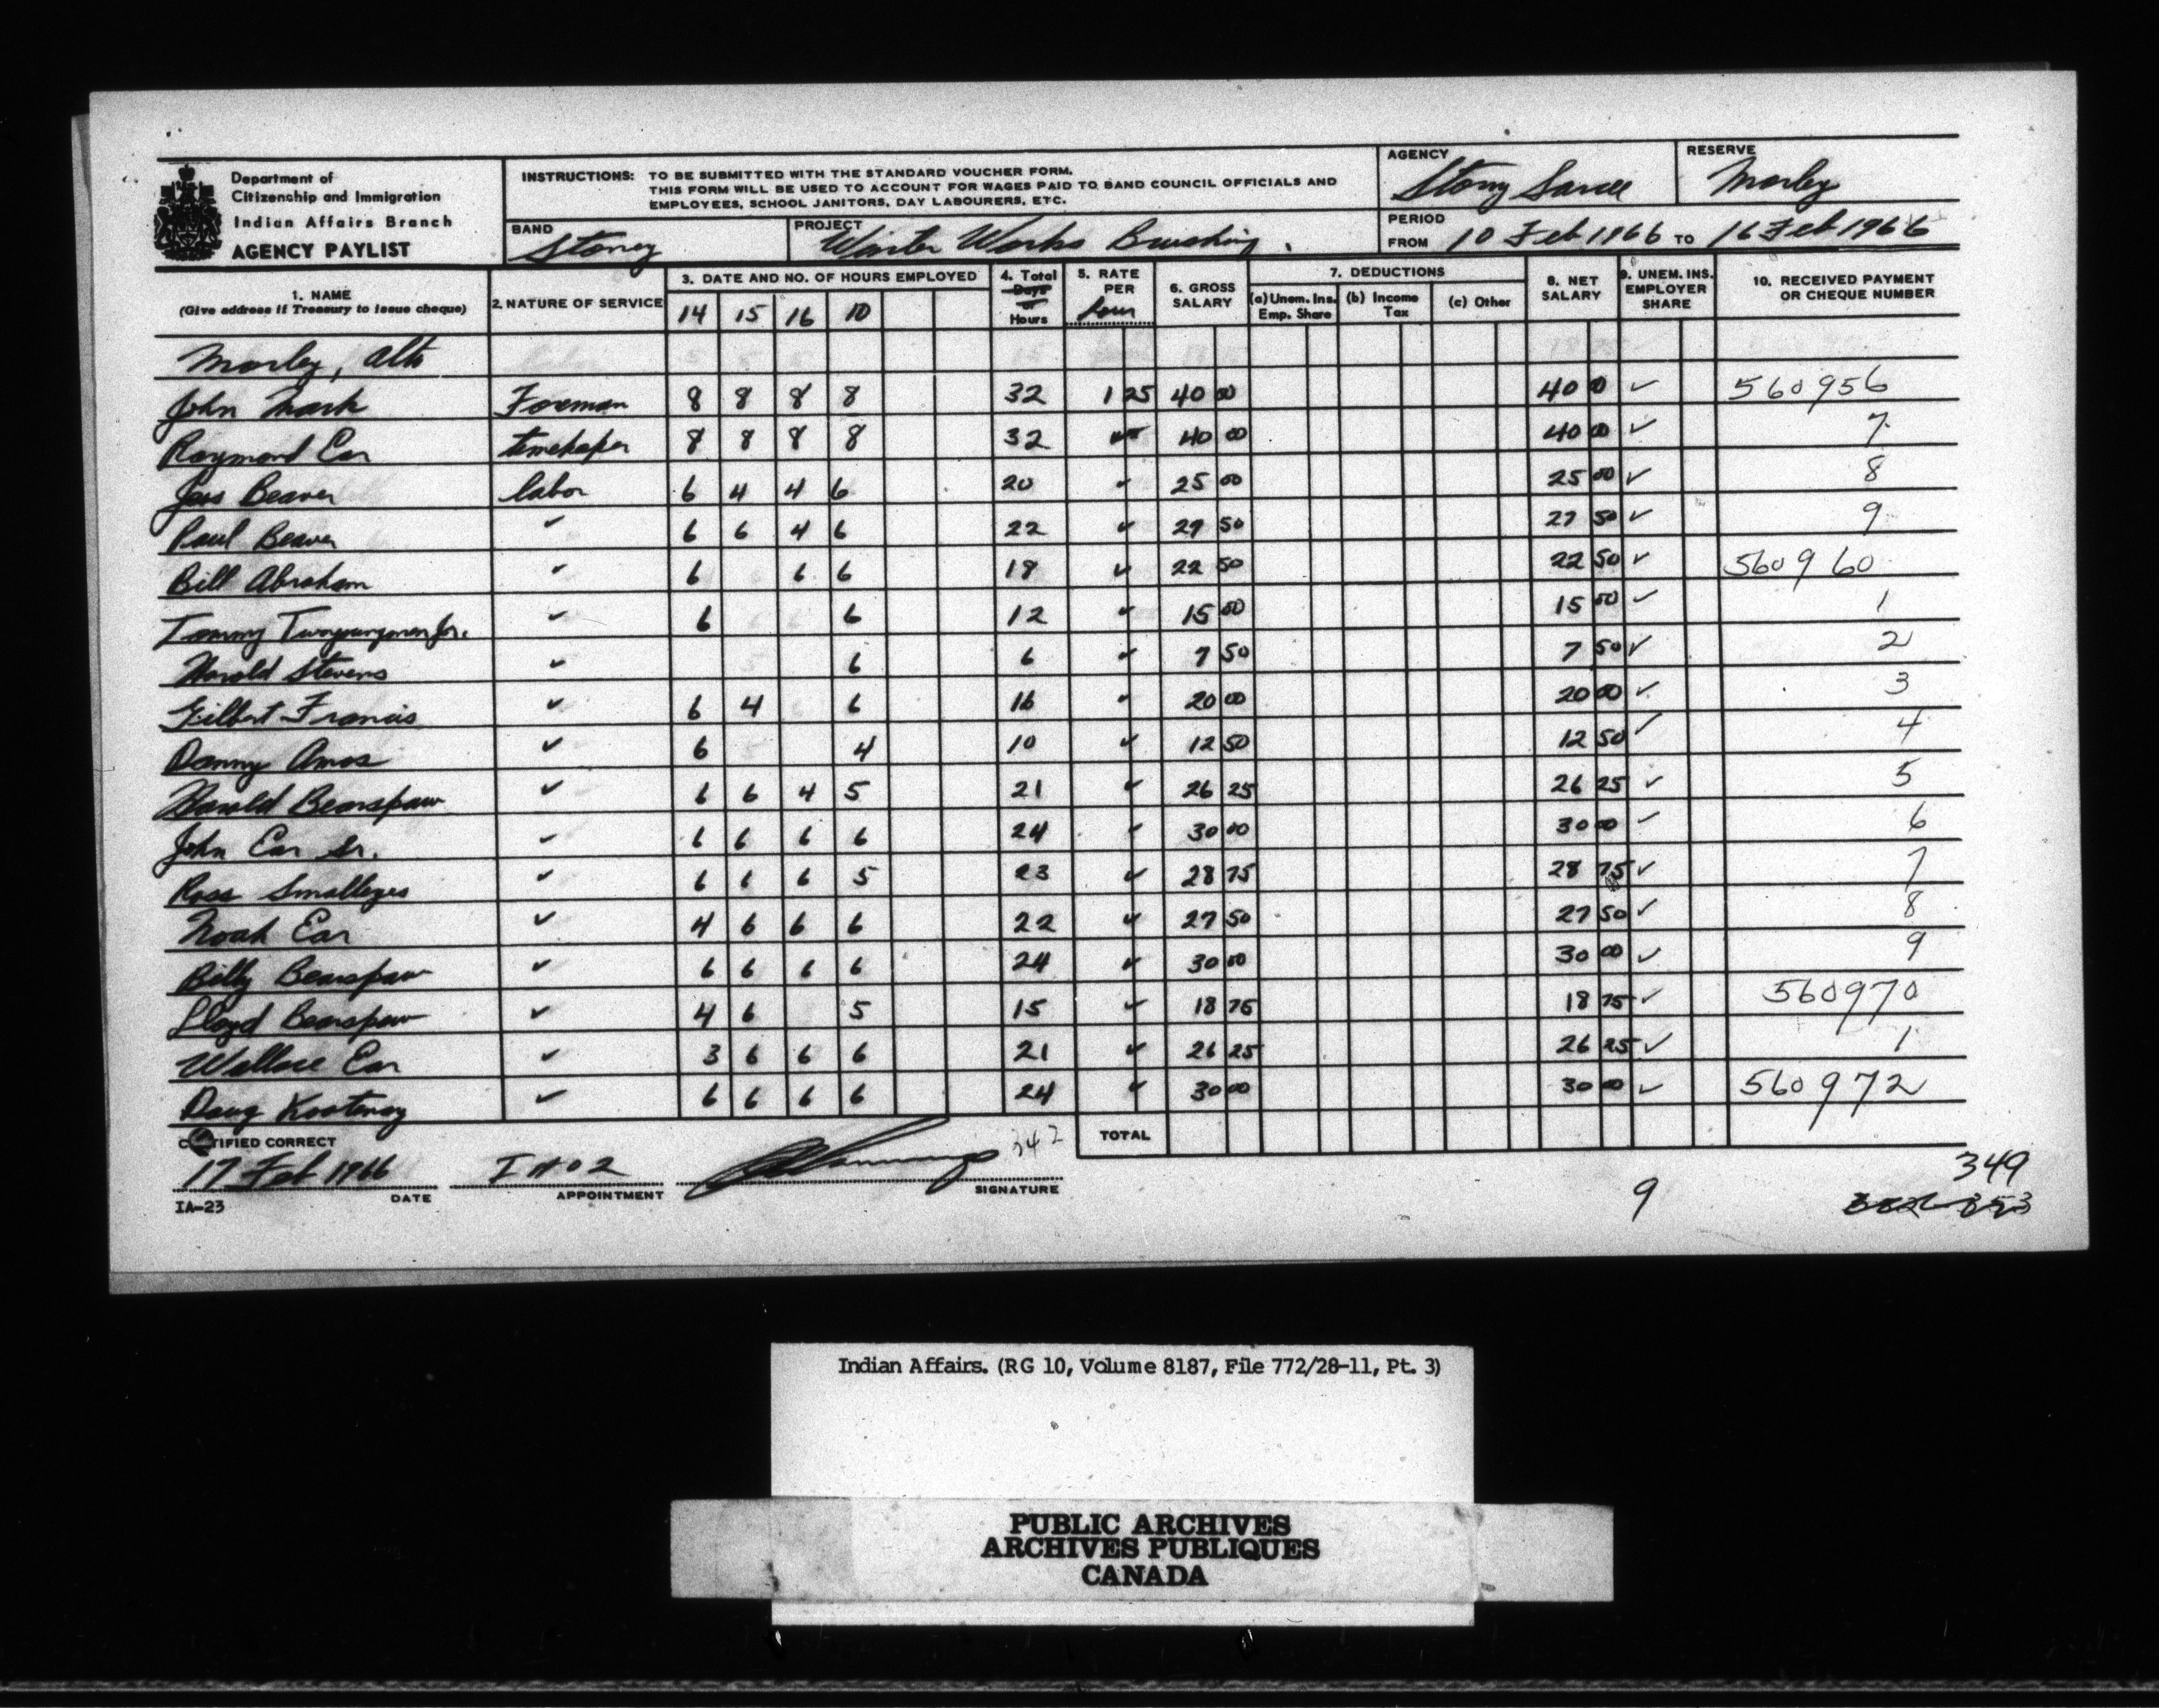 Department of
Citizenship and Immigration
Indian Affairs Branch
AGENCY PAYLIST
INSTRUCTIONS: TO BE SUBMITTED WITH THE STANDARD VOUCHER FORM.
THIS FORM WILL BE USED TO ACCOUNT FOR WAGES PAID TO BAND COUNCIL OFFICIALS AND
EMPLOYEES, SCHOOL JANITORS, DAY LABOURERS, ETC.
AGENCY
Stony Sarcee
RESERVE
Morley
BAND
Stoney
PROJECT
Winter Works Brushing.
PERIOD
FROM 10 Feb 1966 TO 16 Feb 1966
1. NAME
(Give address if Treasury to issue cheque)
2. NATURE OF SERVICE
3. DATE AND NO. OF HOURS EMPLOYED
14 15 16 10
4. Total
Days
or
Hours
5. RATE
PER
hour
6. GROSS
SALARY
7. DEDUCTIONS
(a) Unem. Ins.
Emp. Share
(b) Income
Tax
(c) Other
8. NET
SALARY
9. UNEM. INS.
EMPLOYER
SHARE
10. RECEIVED PAYMENT
OR CHEQUE NUMBER
Morley, Alta
John Mark Foreman 8 8 8 8 32 1 25 40 00 40 0 ✓ 560956
Raymond Ear timekeper 8 8 8 8 32 40 00 40 00 ✓ 7
Jess Beaver labor 6 4 4 6 20 ✓ 25 00 25 00 ✓ 8
Paul Beaver ✓ 6 6 4 6 22 ✓ 27 50 27 50 ✓ 9
Bill Abraham ✓ 6 6 6 18 ✓ 22 50 22 50 ✓ 560960
Tommy Twoyoungmen Jr. ✓ 6 6 12 ✓ 15 00 15 00 ✓ 1
Harold Stevens ✓ 6 6 ✓ 7 50 7 50 ✓ 2
Gilbert Francis ✓ 6 4 6 16 ✓ 20 00 20 00 ✓ 3
Danny Amos ✓ 6 4 10 ✓ 12 50 12 50 ✓ 4
Harold Bearspaw ✓ 6 6 4 5 21 ✓ 26 25 26 25 ✓ 5
John Ear Sr. ✓ 6 6 6 6 24 ✓ 30 00 30 00 ✓ 6
Ross Smalleyes ✓ 6 6 6 5 23 ✓ 28 75 28 75 ✓ 7
Noah Ear ✓ 4 6 6 6 22 ✓ 27 50 27 50 ✓ 8
Billy Bearspaw ✓ 6 6 6 6 24 ✓ 30 00 30 00 ✓ 9
Lloyd Bearspaw ✓ 4 6 5 15 ✓ 18 75 18 75 ✓ 560970
Wallace Ear ✓ 3 6 6 6 21 ✓ 26 25 26 25 ✓ 1
Doug Kootenay ✓ 6 6 6 6 24 ✓ 30 00 30 00 ✓ 560972
CERTIFIED CORRECT
342
TOTAL
17 Feb 1966
DATE
APPOINTMENT
SIGNATURE
IA-23
9
349
Indian Affairs. (RG 10, Volume 8187, File 772/28-11, Pt. 3)
PUBLIC ARCHIVES
ARCHIVES PUBLIQUES
CANADA